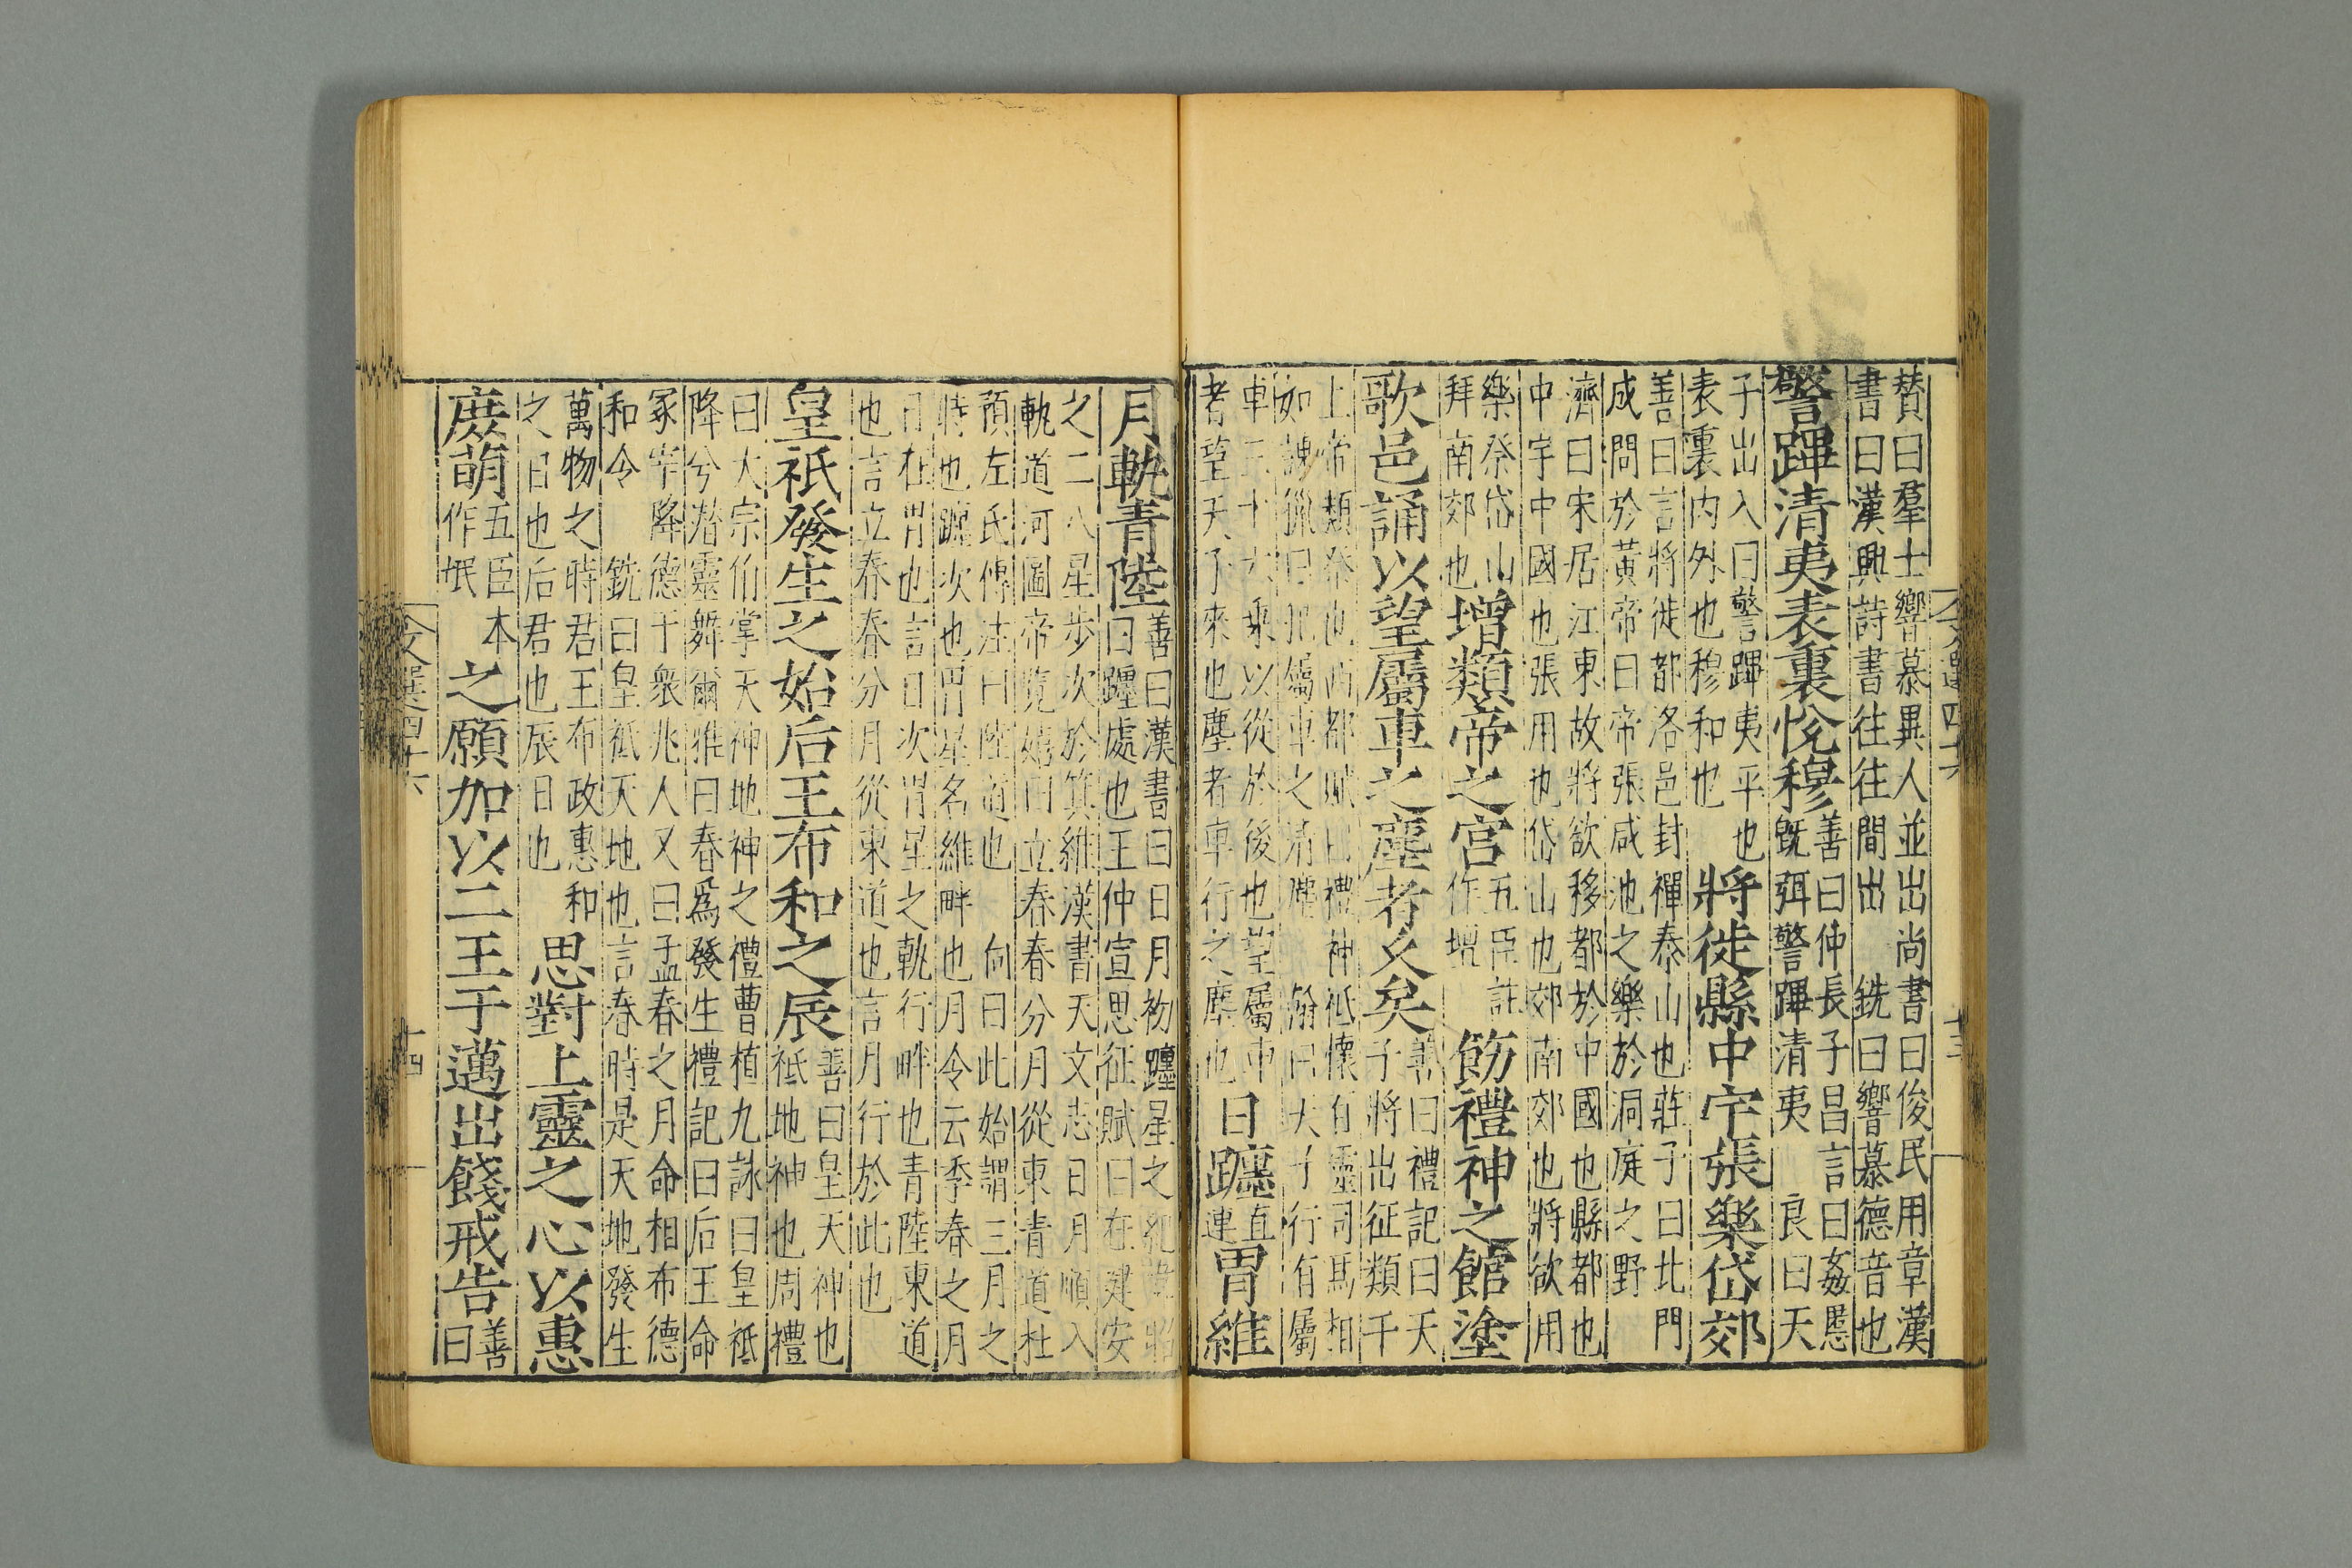 賛曰羣士響慕異人並出尚書曰俊民用章漢
書曰漢興詩書往往間出 銑曰響慕德音也
警蹕清夷表裏悅穆善曰仲長子昌言曰姦慝
既弭警蹕清夷 良曰天
子出入曰警蹕夷平也
表裏内外也穆和也 將徙縣中宇張樂岱郊
善曰言將徙都洛邑封禪泰山也莊子曰北門
成問於黃帝曰帝張咸池之樂於洞庭之野
濟曰宋居江東故將欲移都於中國也縣都也
中宇中國也張用也岱山也郊南郊也將欲用
樂祭岱山
拜南郊也增類帝之宮五臣註
作壇 飭禮神之館塗
歌邑誦以望屬車之塵者久矣善曰禮記曰天
子將出征類千
上帝類祭也西都賦曰禮神祇懷百靈司馬相
如諫獵曰犯屬車之清塵 翰曰天子行有屬
車三十六乘以從於後也望屬車
者望天子來也塵者車行之塵也日躔直
連胃維
月軌青陸善曰漢書曰日月初躔星之紀
曰躔處也王仲宣思征賦曰在建安
之二八星步次於箕維漢書天文志曰月順入
軌道河圖帝覽嬉曰立春春分月從東青道杜
預左氏傳注曰陸道也 向曰此始謂三月之
時也躔次也胃星名維畔也月令云季春之月
日在胃也言日次胃星之軌行畔也青陸東道
也言立春春分月從東道也言月行於此也
皇祇發生之始后王布和之辰善曰皇天神也
祇地神也周禮
曰大宗伯掌天神地神之禮曹植九詠曰皇祇
降兮潛靈舞爾雅曰春爲發生禮記曰后王命
冢宰降德于衆兆人又曰孟春之月命相布德
和令 銑曰皇祇天地也言春時是天地發生
萬物之時君王布政惠和
之日也后君也辰日也 思對上靈之心以惠
庶萌五臣本
作氓 之願加以二王于邁出餞戒告善
曰
文選四十六
十四